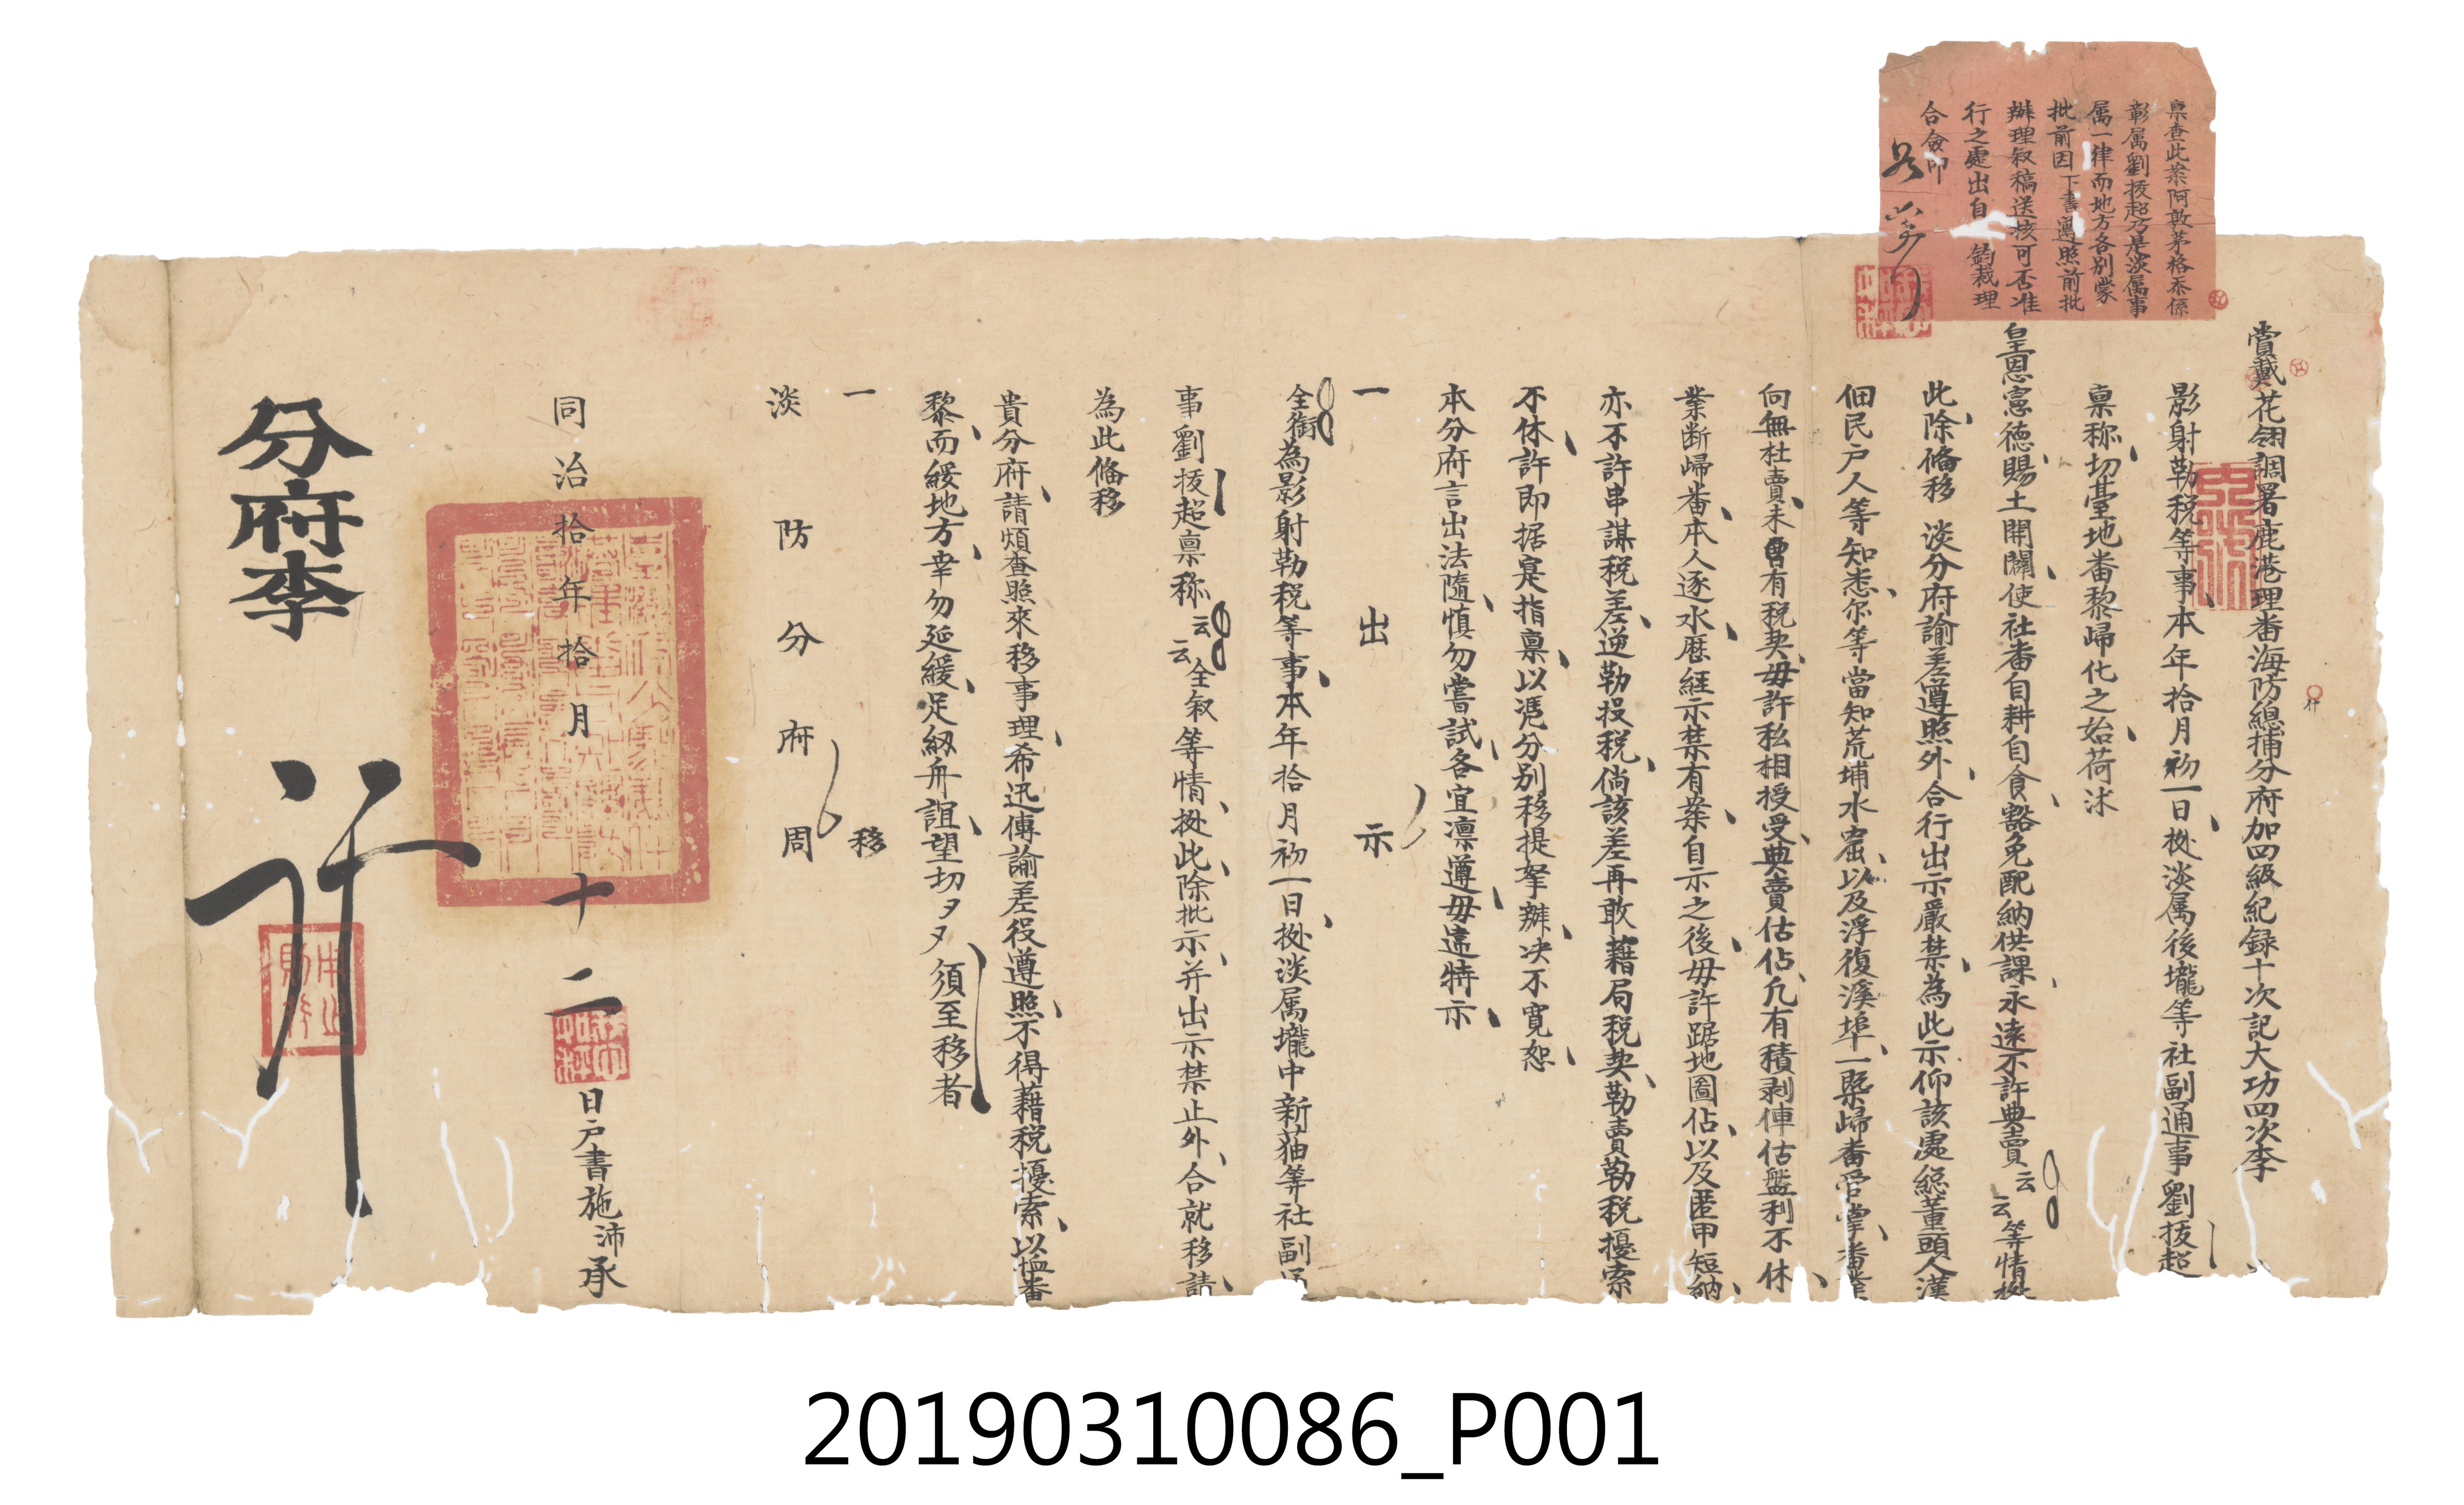 稟查此案阿敦茅格系係
彰属劉援超乃是淡属事
属一律而地方各別蒙
批前因下書遵照前批
辦理叙稿送核可否准
行之處出自 鈞裁理
合僉叩
賞戴花翎調署鹿港理番海防總捕分府加四級紀録十次記大功四次李
影射勒税等事本年拾月初一日拠淡属後壠等社副通事劉援超
稟称切臺地番黎歸化之始荷沐
皇恩憲德賜土開闢使社番自耕自食豁免配納供課永遠不許典賣云云等情拠
此除偹移 淡分府諭差遵照外合行出示嚴禁為此示仰該處総董頭人漢
佃民戸人等知悉尔等當知荒埔水窟以及浮復溪埠一槩歸番管掌番業
向無杜賣未曾有税契毋許私相授受典賣估佔凢有積剥俥估盤利不休
業断歸番本人逐水厯經示禁有案自示之後毋許踞地圖佔以及匿甲短納
亦不許串謀税差逆勒投税倘該差再敢藉局税契勒賣勒税擾索
不休許即据寔指稟以凴分别移提拏辦决不寛恕
本分府言出法隨慎勿嘗試各宜凛遵毋違特示
一 出 示
全銜為影射勒税等事本年拾月初一日拠淡属壠中新猫等社副通
事劉援超稟称云云全叙等情拠此除批示并出示禁止外合就移請
為此偹移
貴分府請煩查照來移事理希迅傳諭差役遵照不得藉税擾索以恤番
黎而緩地方幸勿延緩足紉舟誼望切夕夕須至移者
一 移
淡防分府周
同治拾年拾月十二日戸書施沛承
分府李
行
20190310086_P001